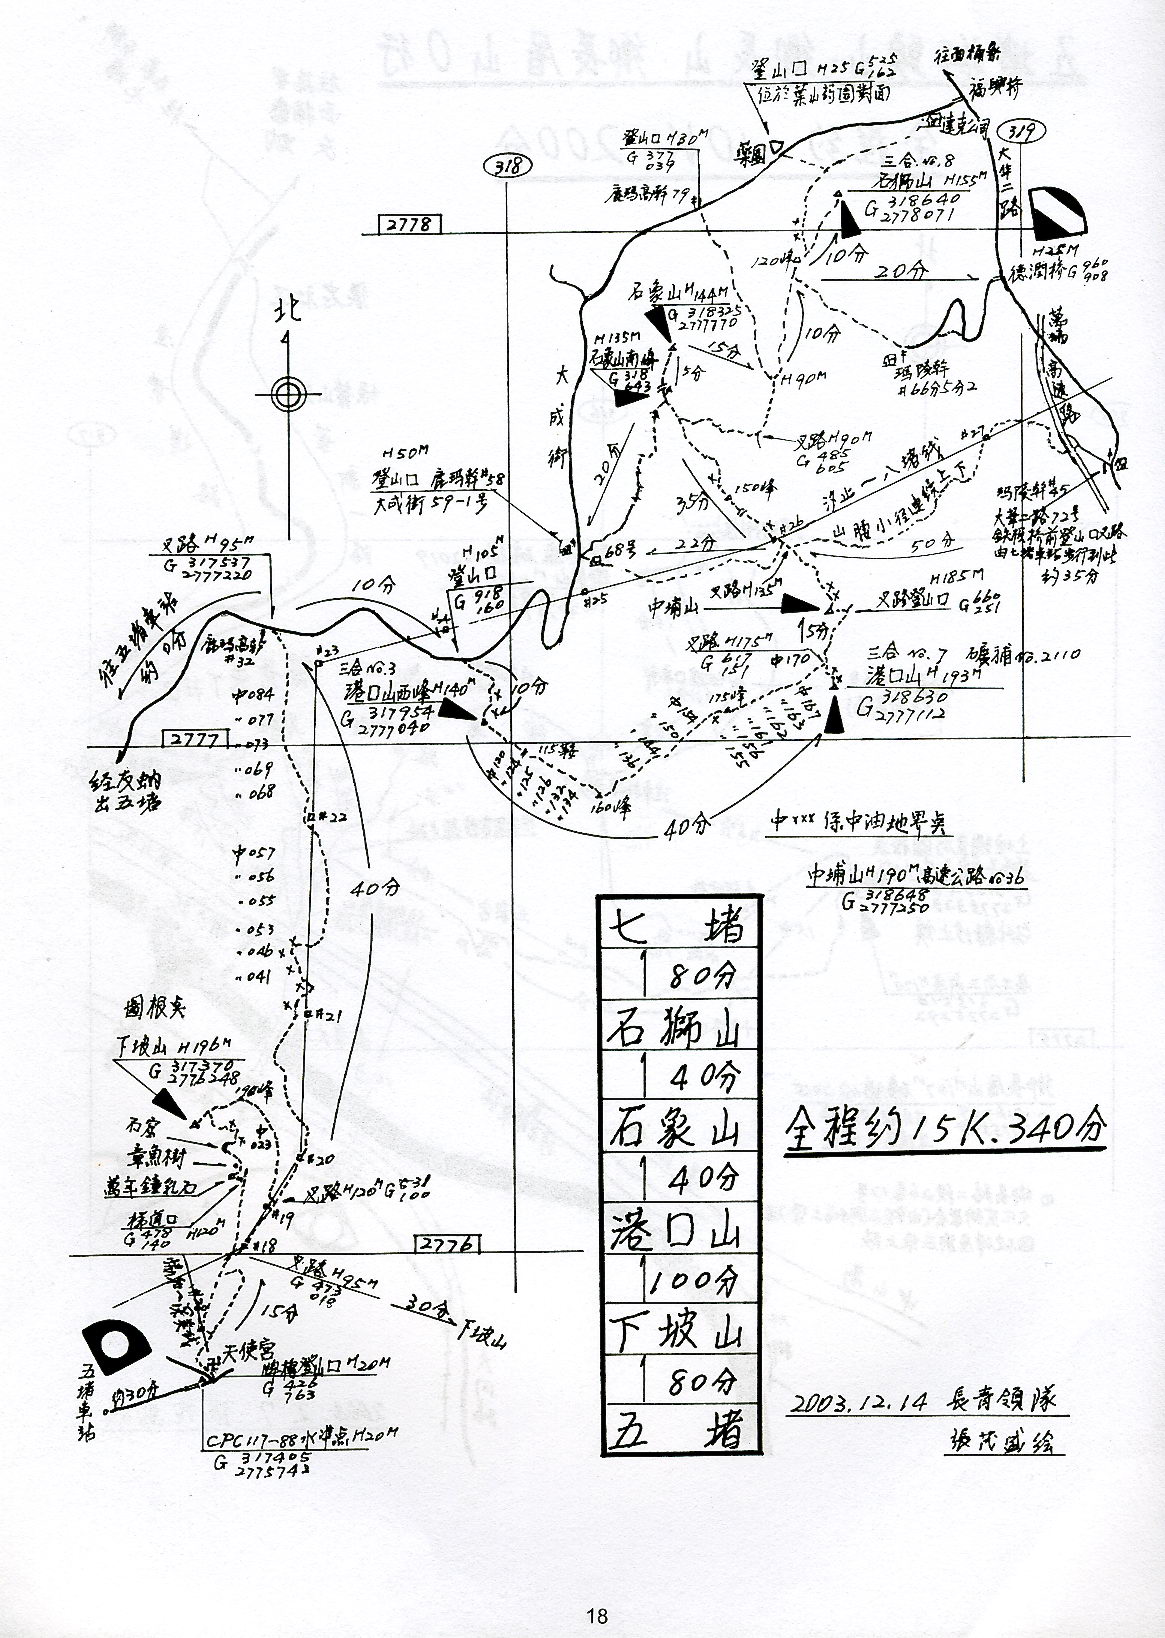 往西桶寮
登山口 H25 G 525 162
位於葉山葯園對面
福興桥
達克公司
319
大華二路
登山口 H30M
G 377 039
鹿瑪高幹79
藥園
318
三合.No.8
石獅山 H155M
G 318640
2778071
2778
120峰
10分
20分
H25M
德潤桥 G 960 908
北
石象山 H144M
G 318325
2777770
15分
10分
H135M
石象山南峰
G 318 643
5分
H90M
瑪陵幹
#66分5分2
萬瑞高速路
大成街
叉路H90M
G 485 605
#27
20分
H50M
登山口 鹿瑪幹#58
大成街59-1号
35分
150峰
#26
汐止一八堵线
山腰小徑連续上下
瑪陵幹#45
大華二路72号
鉄牌桥前登山口叉路
由七堵車站步行到此
約35分
68号
22分
50分
叉路H95M
G 317537
2777220
10分
H105M
登山口
G 918 160
#25
中埔山
叉路H135M
H185M
叉路登山口 G 660 251
往五堵車站
約10分
鹿瑪高幹
#32
#23
叉路H175M
G 617 151
中170
5分
三合 No.7 礦補No.2110
港口山H193M
G 318630
2777112
三合No.3
港口山西峰H140M
G 317954
2777040
10分
中084
〃077
〃073
〃069
〃068
2777
175峰
中154
〃150
〃144
〃136
中167
〃163
〃162
〃161
〃156
〃155
115鞍
中120
〃124
〃125
〃126
〃132
〃134
160峰
40分
経友蚋
出五堵
#22
中xxx 係中油地界点
中057
〃056
〃055
〃053
〃046
〃041
40分
中埔山H190M高速公路No36
G 318648
2777250
#21
圖根点
下坡山 H196M
G 317370
2776248
190峰
中023
石窟
章魚樹
萬年鐘乳石
#20
叉路H120M G 531 100
#19
梯道口
G 478 140
H120M
#18
2776
叉路 H95M
G 473 018
30分
下坡山
15分
天使宮
牌樓登山口H20M
G 426 763
五堵車站
約30分
CPC117-88水準点H20M
G 317405
2775743
七 堵
80分
石獅山
40分
石象山
40分
港口山
100分
下坡山
80分
五 堵
全程約15K.340分
2003.12.14 長青領隊
張茂盛绘
18